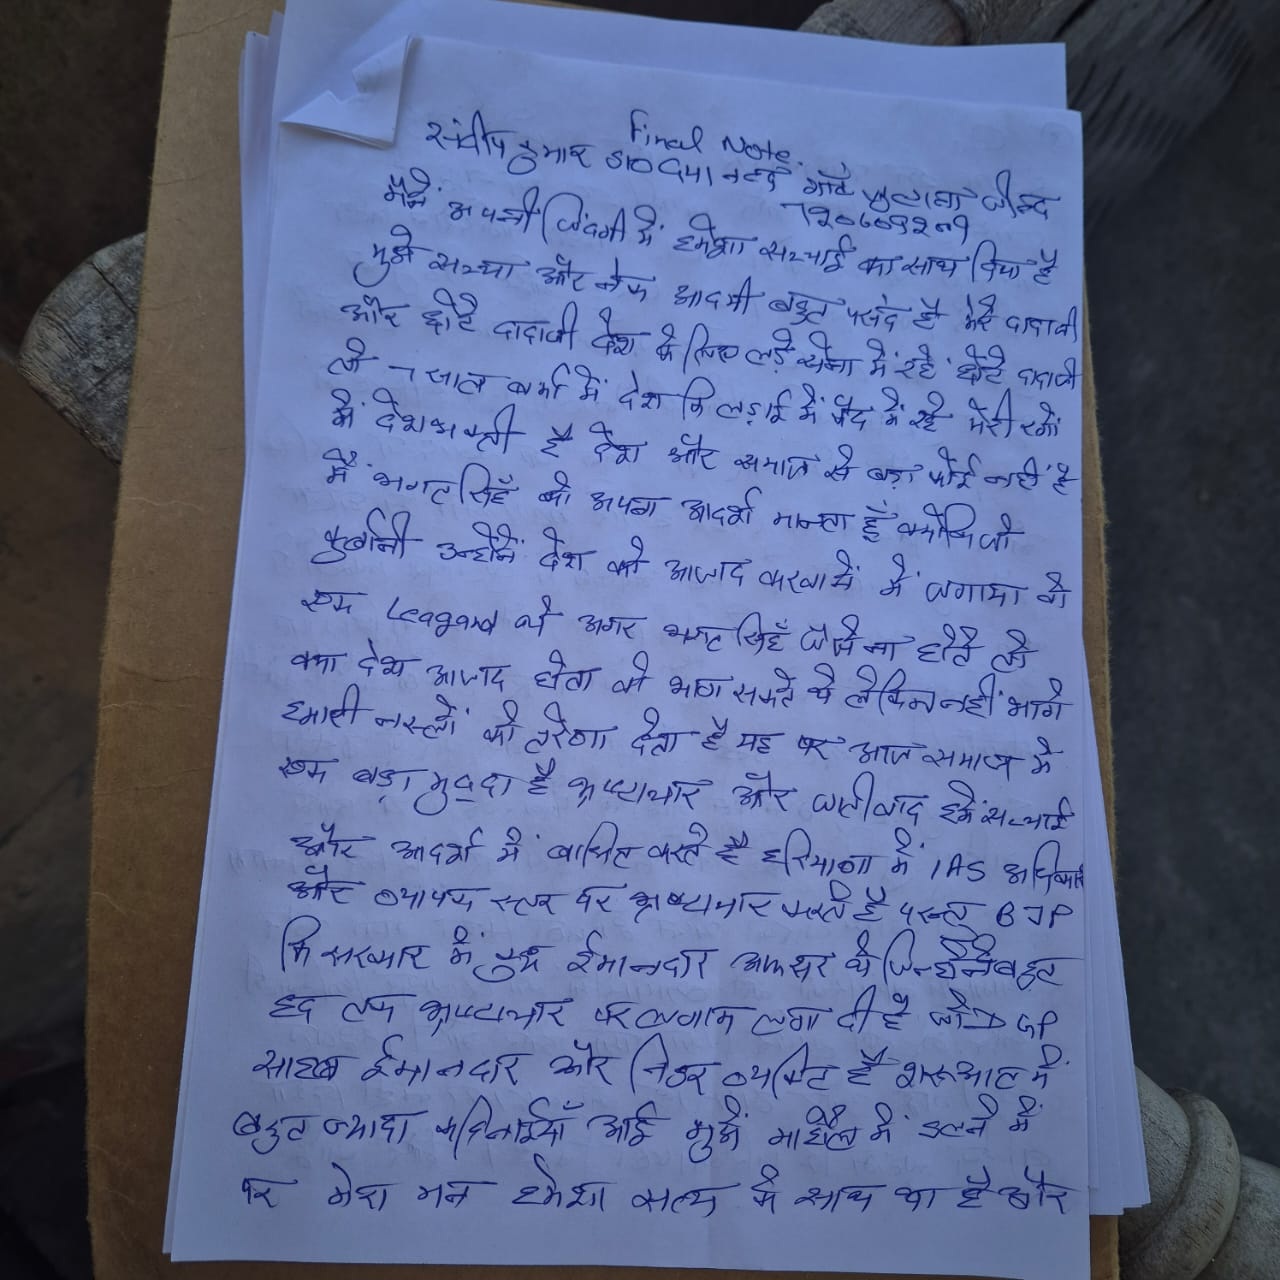 Final Note.
संदीप कुमार S/O दया नन्द गाँव जुलाना जीन्द
मैंने अपनी जिंदगी में हमेशा सच्चाई का साथ दिया है
मुझे सच्चा और नेक आदमी बहुत पसंद है मेरे दादाजी
और छोटे दादाजी देश के लिए लड़े सेना में रहे छोटे दादाजी
तो 7 साल बर्मा में देश कि लड़ाई में कैद में रहे मेरी रगों
में देशभक्ती है देश और समाज से बड़ा कोई नहीं है
मैं भगत सिहँ को अपना आदर्श मानता हूँ क्योंकि जो
कुर्बानी उन्होंने देश को आजाद करवाने में लगाया वो
एक Leagand थे अगर भगत सिहँ जैसे ना होते तो
क्या देश आजाद होता वो भाग सकते थे लेकिन नहीं भागे
हमारी नस्लों को प्रेरणा देता है यह पर आज समाज में
एक बड़ा मुद्दा है भ्रष्टाचार और जातीवाद हमें सच्चाई
और आदर्श में बाधित करते है हरियाणा में IAS अधिकारी
और व्यापक स्तर पर भ्रष्टाचार करते है परन्तु BJP
कि सरकार में कुछ ईमानदार अफसर थे जिन्होंने बहुत
हद तक भ्रष्टाचार पर लगाम लगा दी है जो DGP
साहब ईमानदार और निडर व्यक्ति है शरूआत में
बहुत ज्यादा कठिनाईयाँ आई मुझे माहौल में ढलने में
पर मेरा मन हमेशा सत्य के साथ था है और